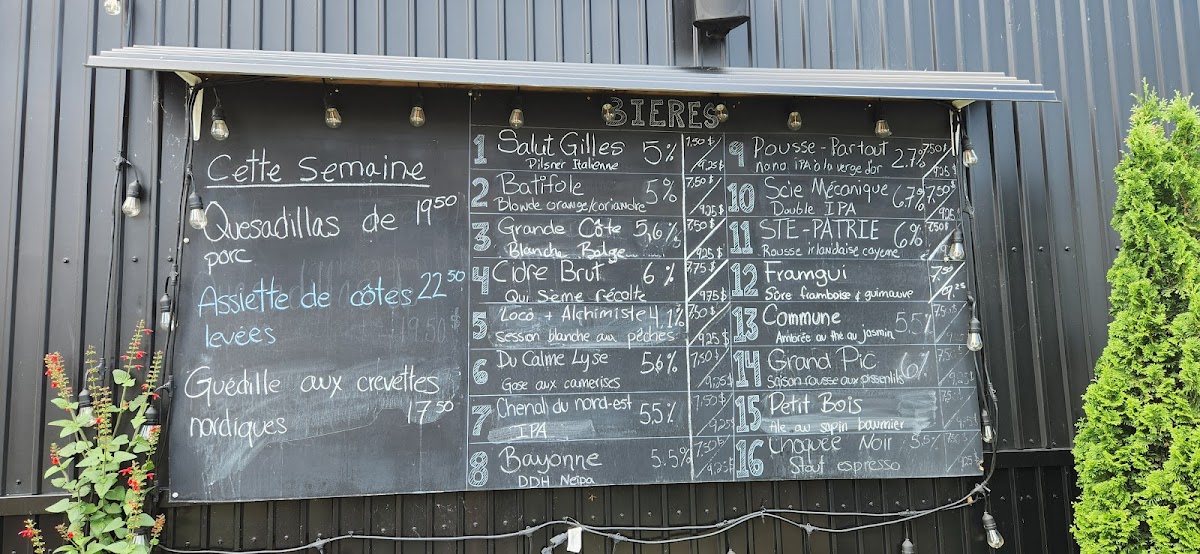 Cette Semaine
Quesadillas de 19.50
porc
Assiette de côtes 22.50
levées
Guédille aux crevettes
nordiques 17.50
BIERES
1 Salut Gilles 5% 7,50$
Pilsner Italienne 9,25$
2 Batifole 5% 7,50$
Blonde orange/coriandre 9,25$
3 Grande Côte 5,6% 7,50$
Blanche Balge 9,25$
4 Cidre Brut 6% 7,75$
Qui Sème récolte 9,75$
5 Loco + Alchimiste 4,1% 7,50$
session blanche aux pêches 9,25$
6 Du Calme Lyse 5,6% 7,50$
Gose aux camerises 9,25$
7 Chenal du nord-est 5,5% 7,50$
IPA 9,25$
8 Bayonne 5.5% 7,50$
DDH Neipa 9,25$
9 Pousse-Partout 2.7% 7,50$
nano IPA à la verge d'or 9,25$
10 Scie Mécanique 6,7% 7,50$
Double IPA 9,25$
11 STE-PATRIE 6% 7,50$
Rousse irlandaise cayenne
12 Framgui 7,50
Sûre framboise & guimauve 9,25
13 Commune 5.5%
Ambrée au thé au jasmin
14 Grand Pic 6%
Saison rousse aux pissenlits
15 Petit Bois
Ale au sapin baumier
16 Choquée Noir 5.5%
Stout espresso